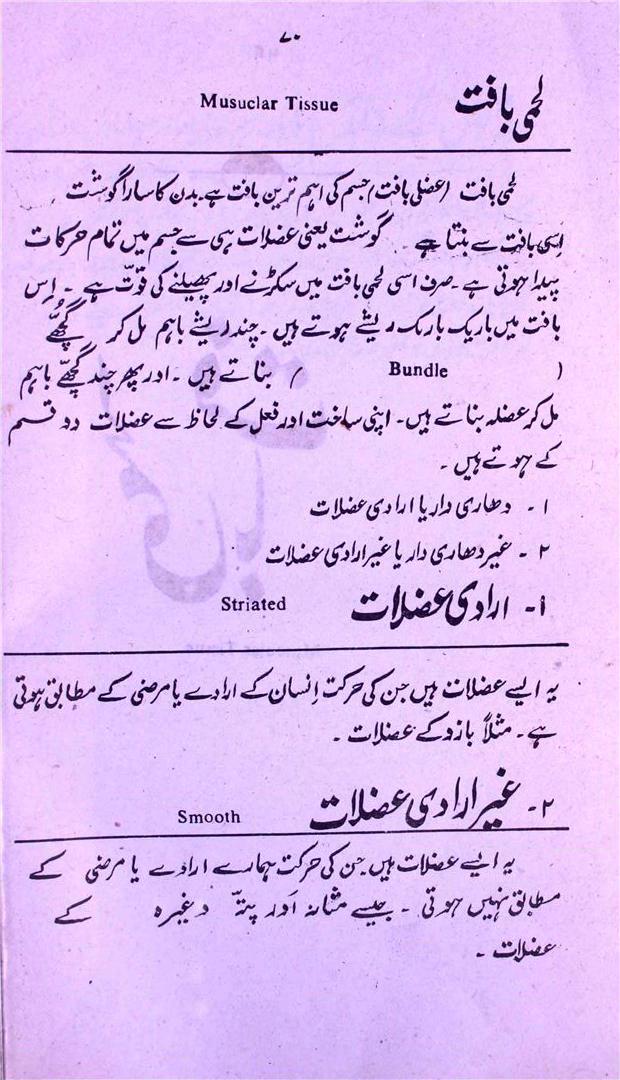 ۷۰
لحمی بافت Musuclar Tissue
لحمی بافت (عضلی بافت) جسم کی اہم ترین بافت ہے۔ بدن کا سارا گوشت
اِسی بافت سے بنتا ہے۔ گوشت یعنی عضلات ہی سے جسم میں تمام حرکات
پیدا ہوتی ہے۔ صرف اسی لحمی بافت میں سکڑنے اور پھیلنے کی قوّت ہے۔ اِس
بافت میں باریک باریک ریشے ہوتے ہیں۔ چند ریشے باہم مل کر گُچھّے
( Bundle ) بناتے ہیں۔ اور پھر چند گچھّے باہم
مل کر عضلہ بناتے ہیں۔ اپنی ساخت اور فعل کے لحاظ سے عضلات دو قسم
کے ہوتے ہیں۔
۱۔ دھاری دار یا ارادی عضلات
۲۔ غیر دھاری دار یا غیر ارادی عضلات
۱۔ ارادی عضلات Striated
یہ ایسے عضلات ہیں جن کی حرکت اِنسان کے ارادے یا مرضی کے مطابق ہوتی
ہے۔ مثلاً بازو کے عضلات۔
۲۔ غیر ارادی عضلات Smooth
یہ ایسے عضلات ہیں جن کی حرکت ہمارے ارادے یا مرضی کے
مطابق نہیں ہوتی۔ جیسے مثانہ اور پتّہ وغیرہ کے
عضلات۔